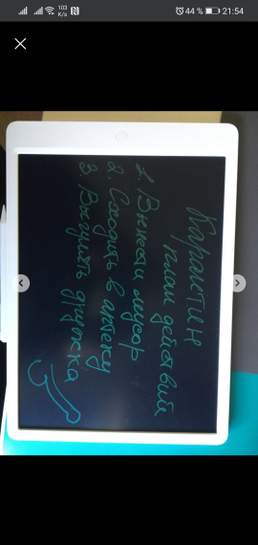 103
K/s
44 %
21:54
Карантин
план действий
1. Вынести мусор
2. Сходить в аптеку
3. Выгулять дружка